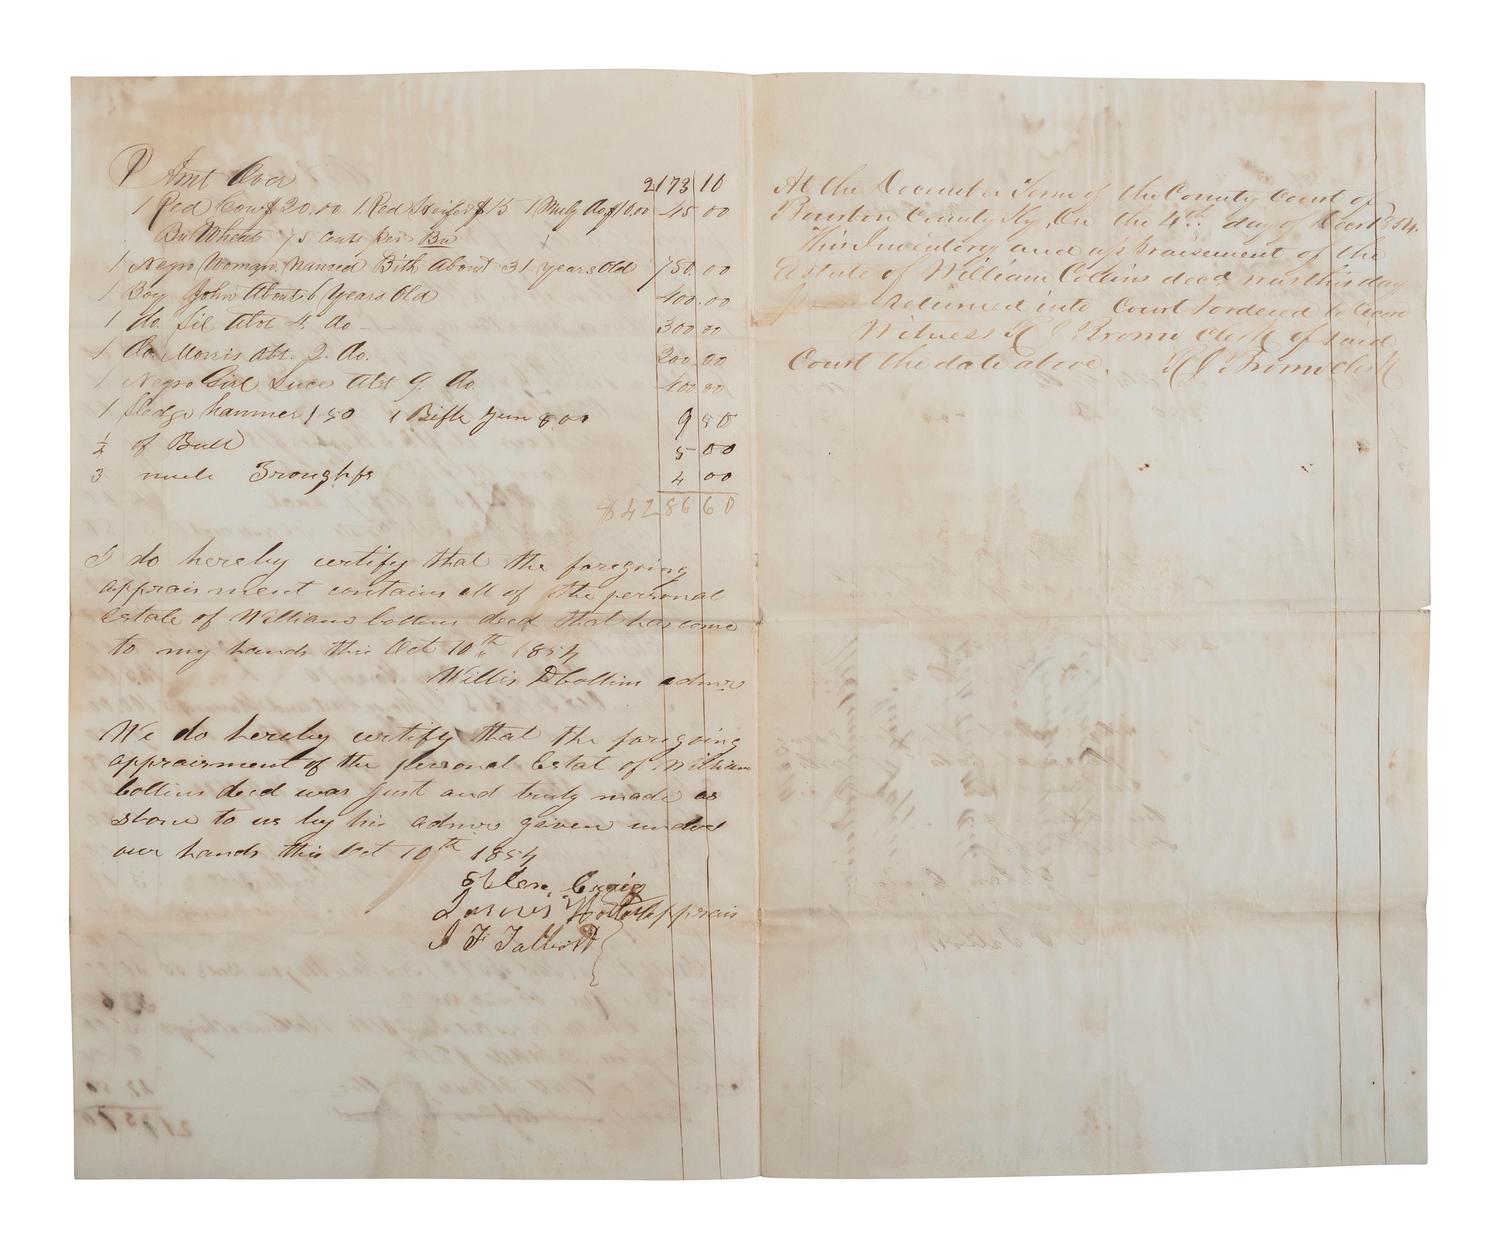 Amt Over 2173 10
1 Red Cow $20.00 1 Red Heifer $15 1 Muly do $10.00 45 00
Bu Wheat 75 cents per Bu
1 Negro Woman Named Bith About 31 years Old 750.00
1 Boy John About 6 Years Old 400.00
1 do. Abt 4 do 300 00
1 do. Morris Abt. 2. do. 200.00
1 Negro Girl Luce Abt 9 do 400 00
1 Sledge hammer 1.50 1 Rifle Gun 8.00 9 50
½ of Bull 5 00
3 mule Troughfs 4 00
$4286 60
I do hereby certify that the foregoing
appraisment contains all of the personal
Estate of William Collins decd that has come
to my hands this Oct 10th 1854
Willis D Collins admr
We do hereby certify that the foregoing
appraisment of the personal Estat of William
Collins decd was just and truly made as
shone to us by his admr given under
our hands this Oct 10th 1854
Craig
apprais
J F Talbott
At the December Term of the County Court of
Bourbon County Ky, On the 4th day of Decr 1854.
This Inventory and appraisement of the
Estate of William Collins decd was this day
returned into Court & ordered to
Witness Brown clerk of said
Court the date above. Brown clerk